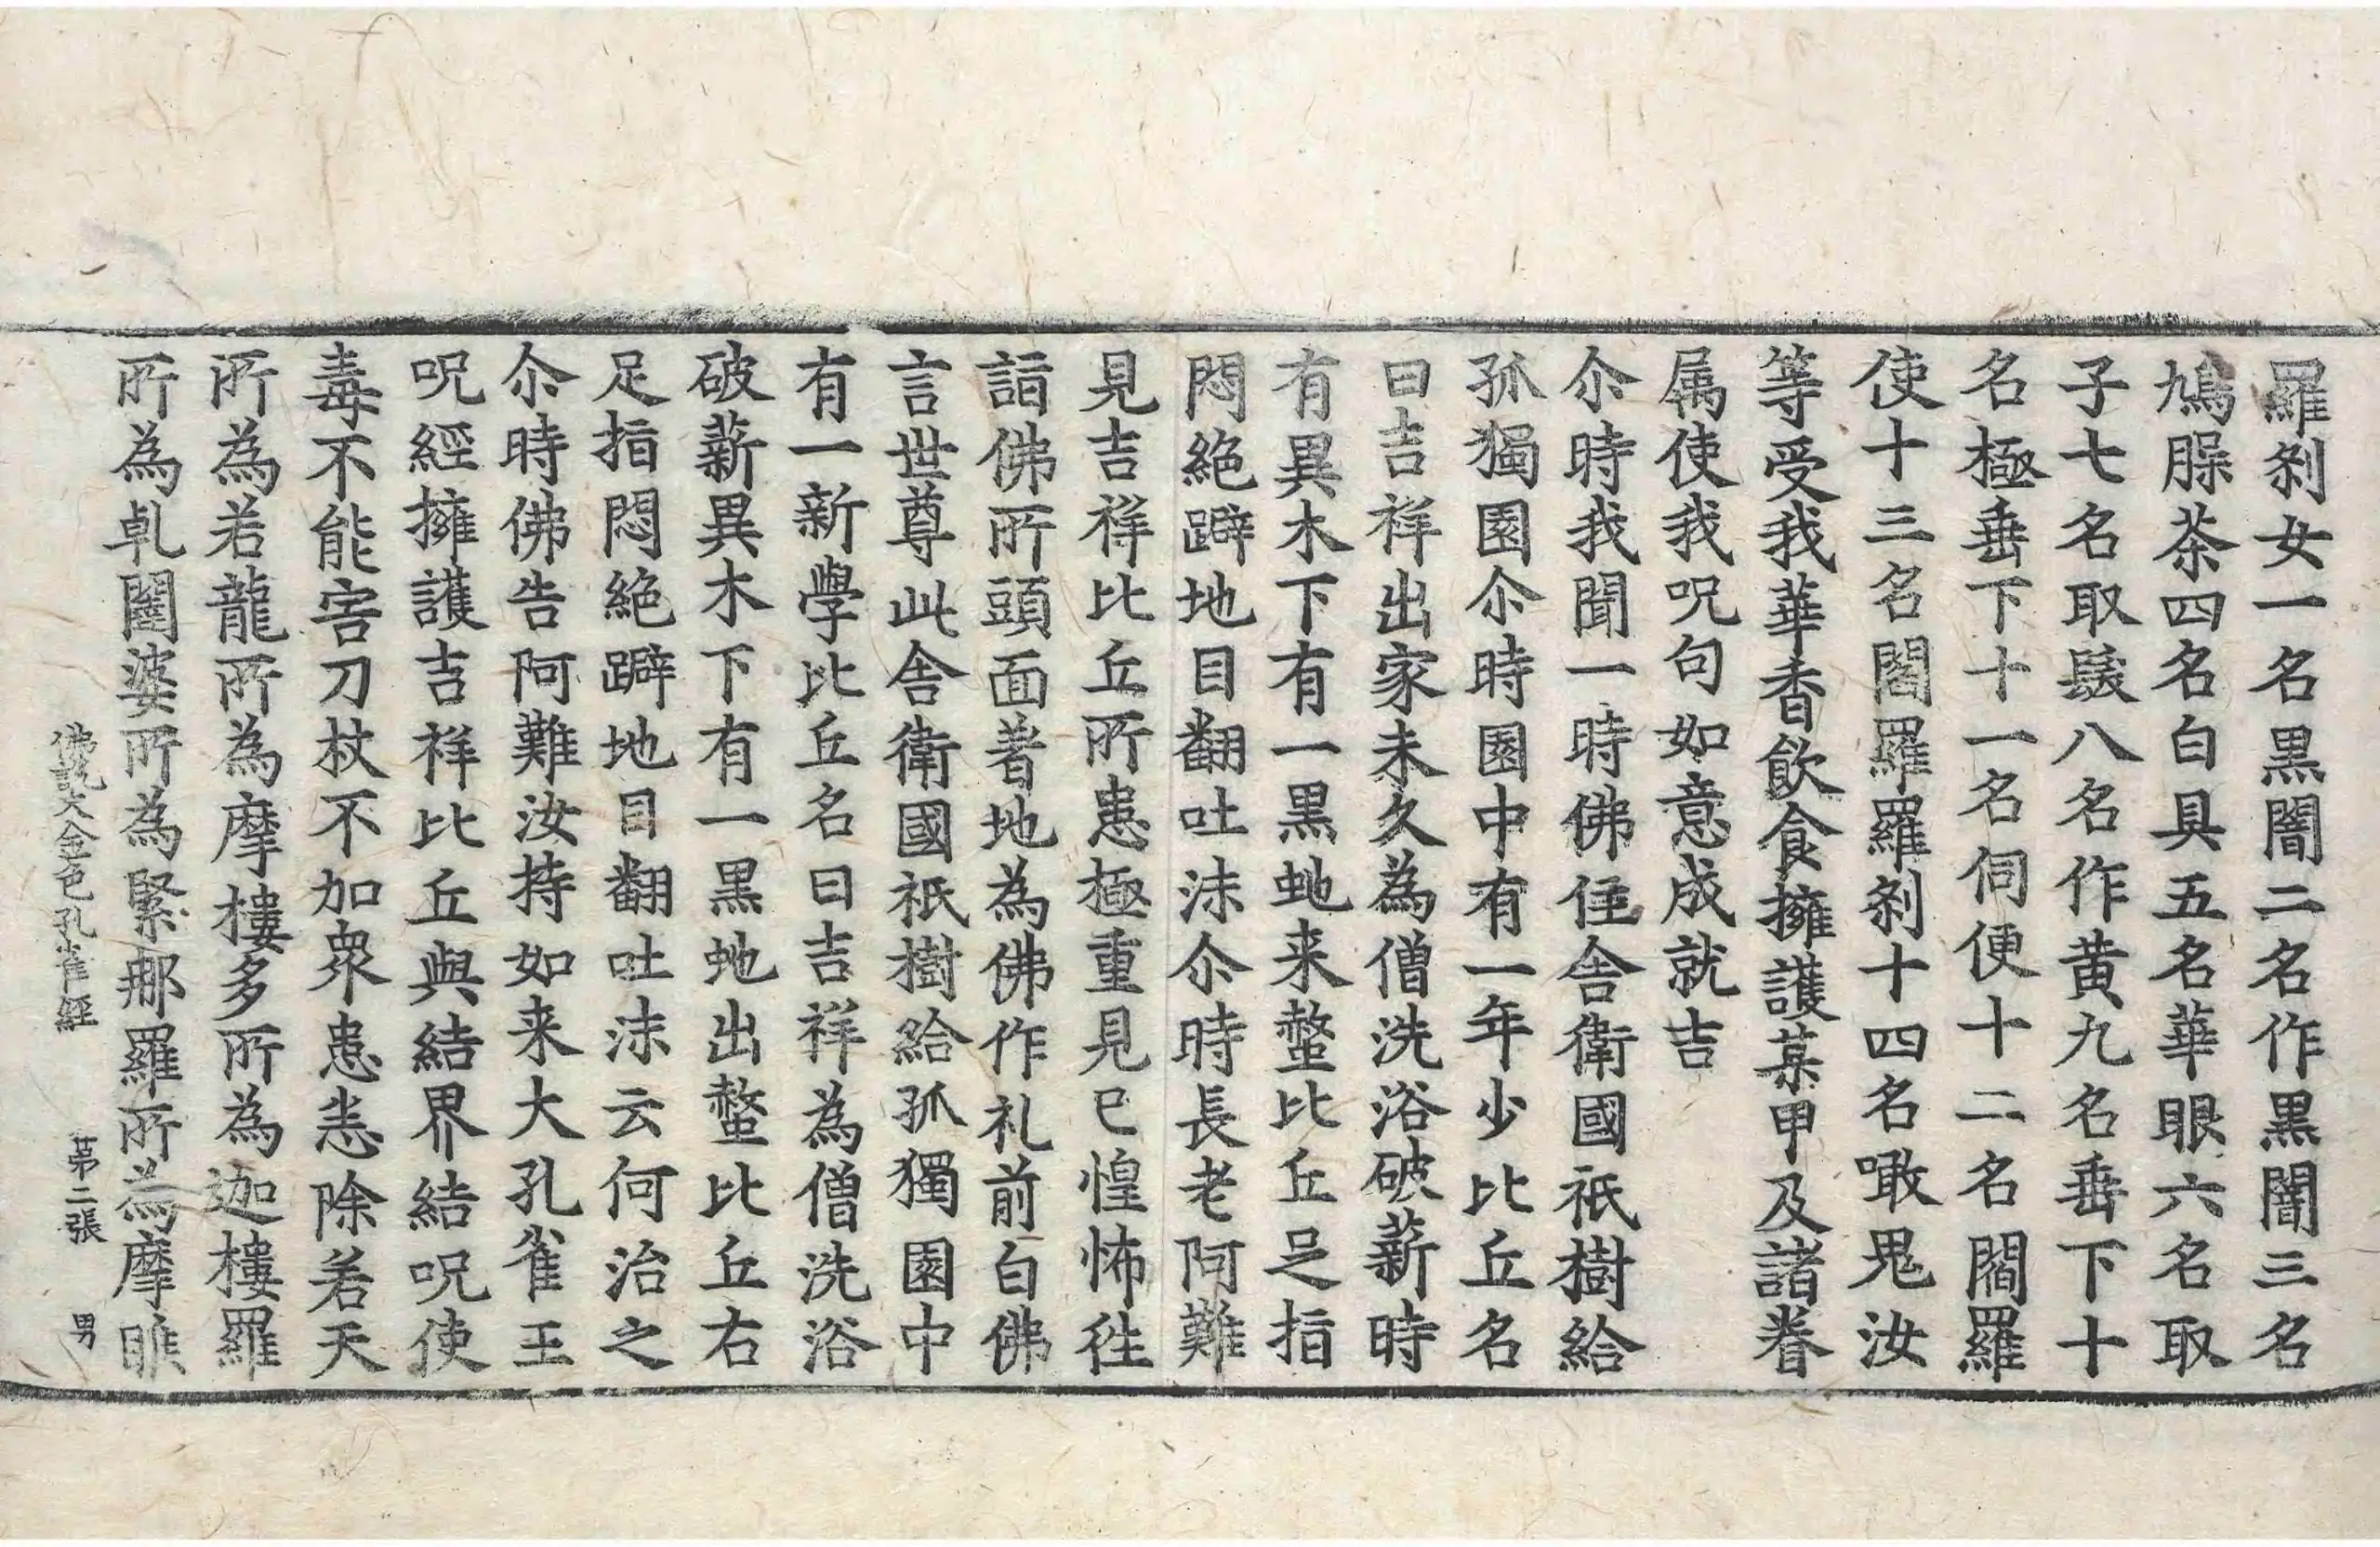 羅刹女一名黒闇二名作黒闇三名
鳩脲荼四名白具五名華眼六名取
子七名取髮八名作黄九名垂下十
名極垂下十一名伺便十二名閻羅
使十三名閻羅羅刹十四名噉鬼汝
等受我華香飲食擁護某甲及諸眷
属使我呪句如意成就吉
尒時我聞一時佛住舎衛國祇樹給
孤獨園尒時園中有一年少比丘名
曰吉祥出家未久為僧洗浴破薪時
有異木下有一黒虵来螫比丘足指
悶絶躃地目翻吐沫尒時長老阿難
見吉祥比丘所患極重見已惶怖往
詣佛所頭面著地為佛作礼前白佛
言世尊此舎衛國祇樹給孤獨園中
有一新學比丘名曰吉祥為僧洗浴
破薪異木下有一黒虵出螫比丘右
足指悶絶躃地目翻吐沫云何治之
尒時佛告阿難汝持如来大孔雀王
呪經擁護吉祥比丘與結界結呪使
毒不能害刀杖不加衆患悉除若天
所為若龍所為摩樓多所為迦樓羅
所為乹闥婆所為緊那羅所為摩睺
佛說大金色孔雀經　第二張　男